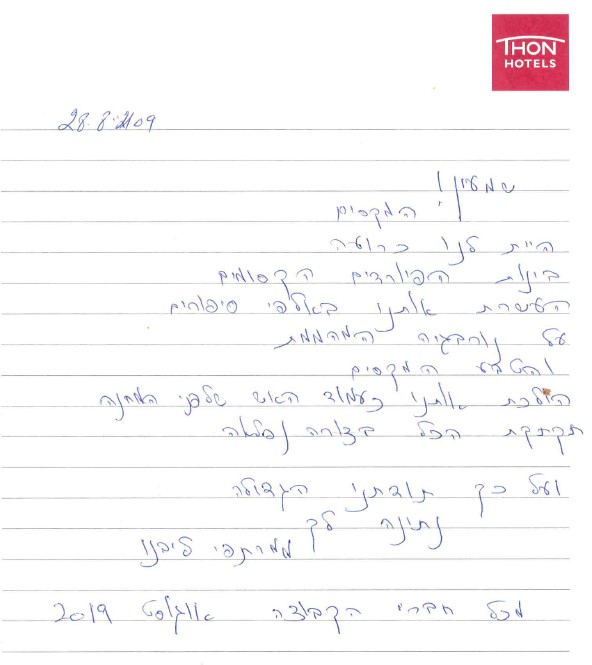 THON
HOTELS
28.8.2109
שמעון!
המקסים
היית לנו כרועה
בינות הפיורדים הקסומים
העשרת אותנו באלפי סיפורים
על נורבגיה המהממת
והטבע המקסים
הולכת אותנו כעמוד האש שלפני המחנה
תקתקת הכל בצורה נפלאה
ועל כך תודתנו הגדולה
נתונה לך
ממרתפי ליבנו
מכל חברי הקבוצה אוגוסט 2019